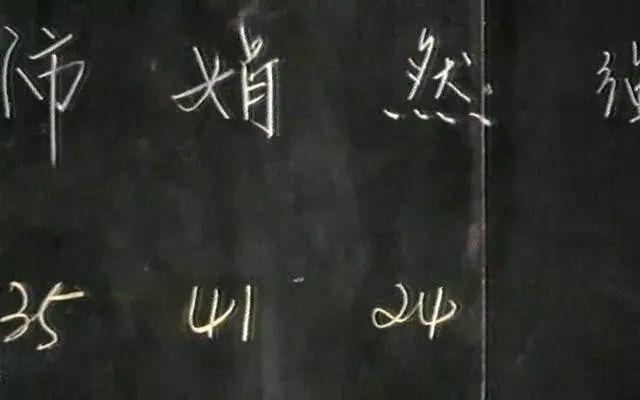 师 娋 然
35 41 24